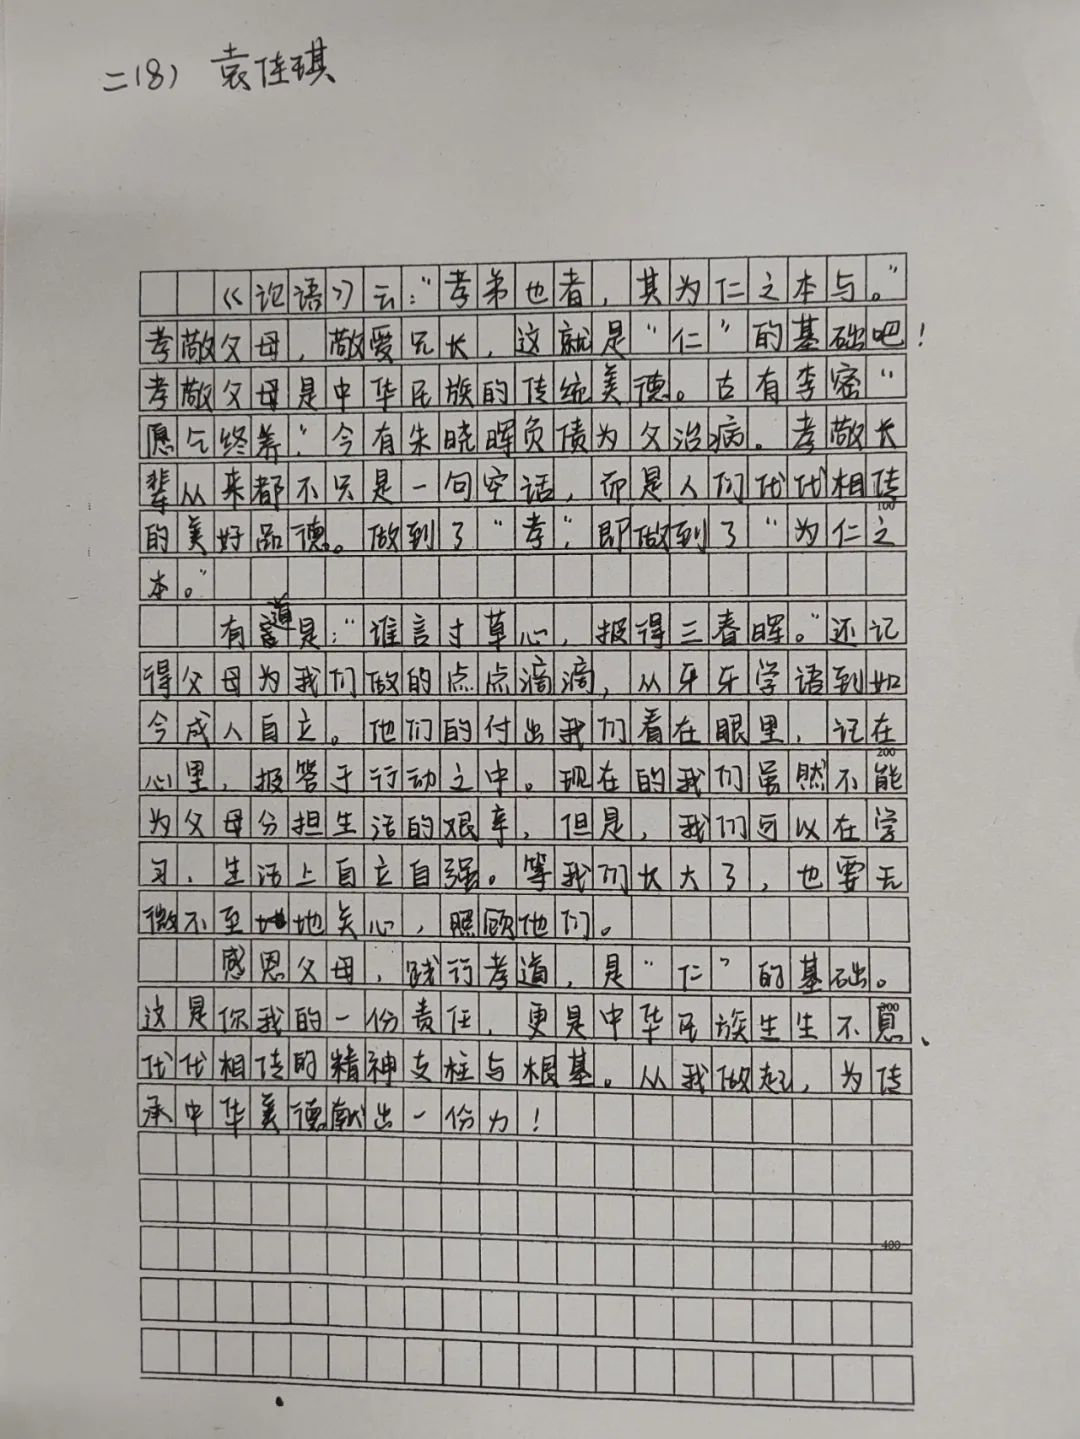 二(8) 袁佳琪
《论语》云:“孝弟也者，其为仁之本与。”
孝敬父母，敬爱兄长，这就是“仁”的基础吧！
孝敬父母是中华民族的传统美德。古有李密“
愿乞终养”，今有朱晓晖负债为父治病。孝敬长
辈从来都不只是一句空话，而是人们代代相传
100
的美好品德。做到了“孝”，即做到了“为仁之
本。”
有道是:“谁言寸草心，报得三春晖。”还记
得父母为我们做的点点滴滴，从牙牙学语到如
今成人自立。他们的付出我们看在眼里，记在
200
心里，报答于行动之中。现在的我们虽然不能
为父母分担生活的艰辛，但是，我们可以在学
习、生活上自立自强。等我们长大了，也要无
微不至地关心，照顾他们。
感恩父母，践行孝道，是“仁”的基础。
300
这是你我的一份责任，更是中华民族生生不息、
代代相传的精神支柱与根基。从我做起，为传
承中华美德献出一份力！
400